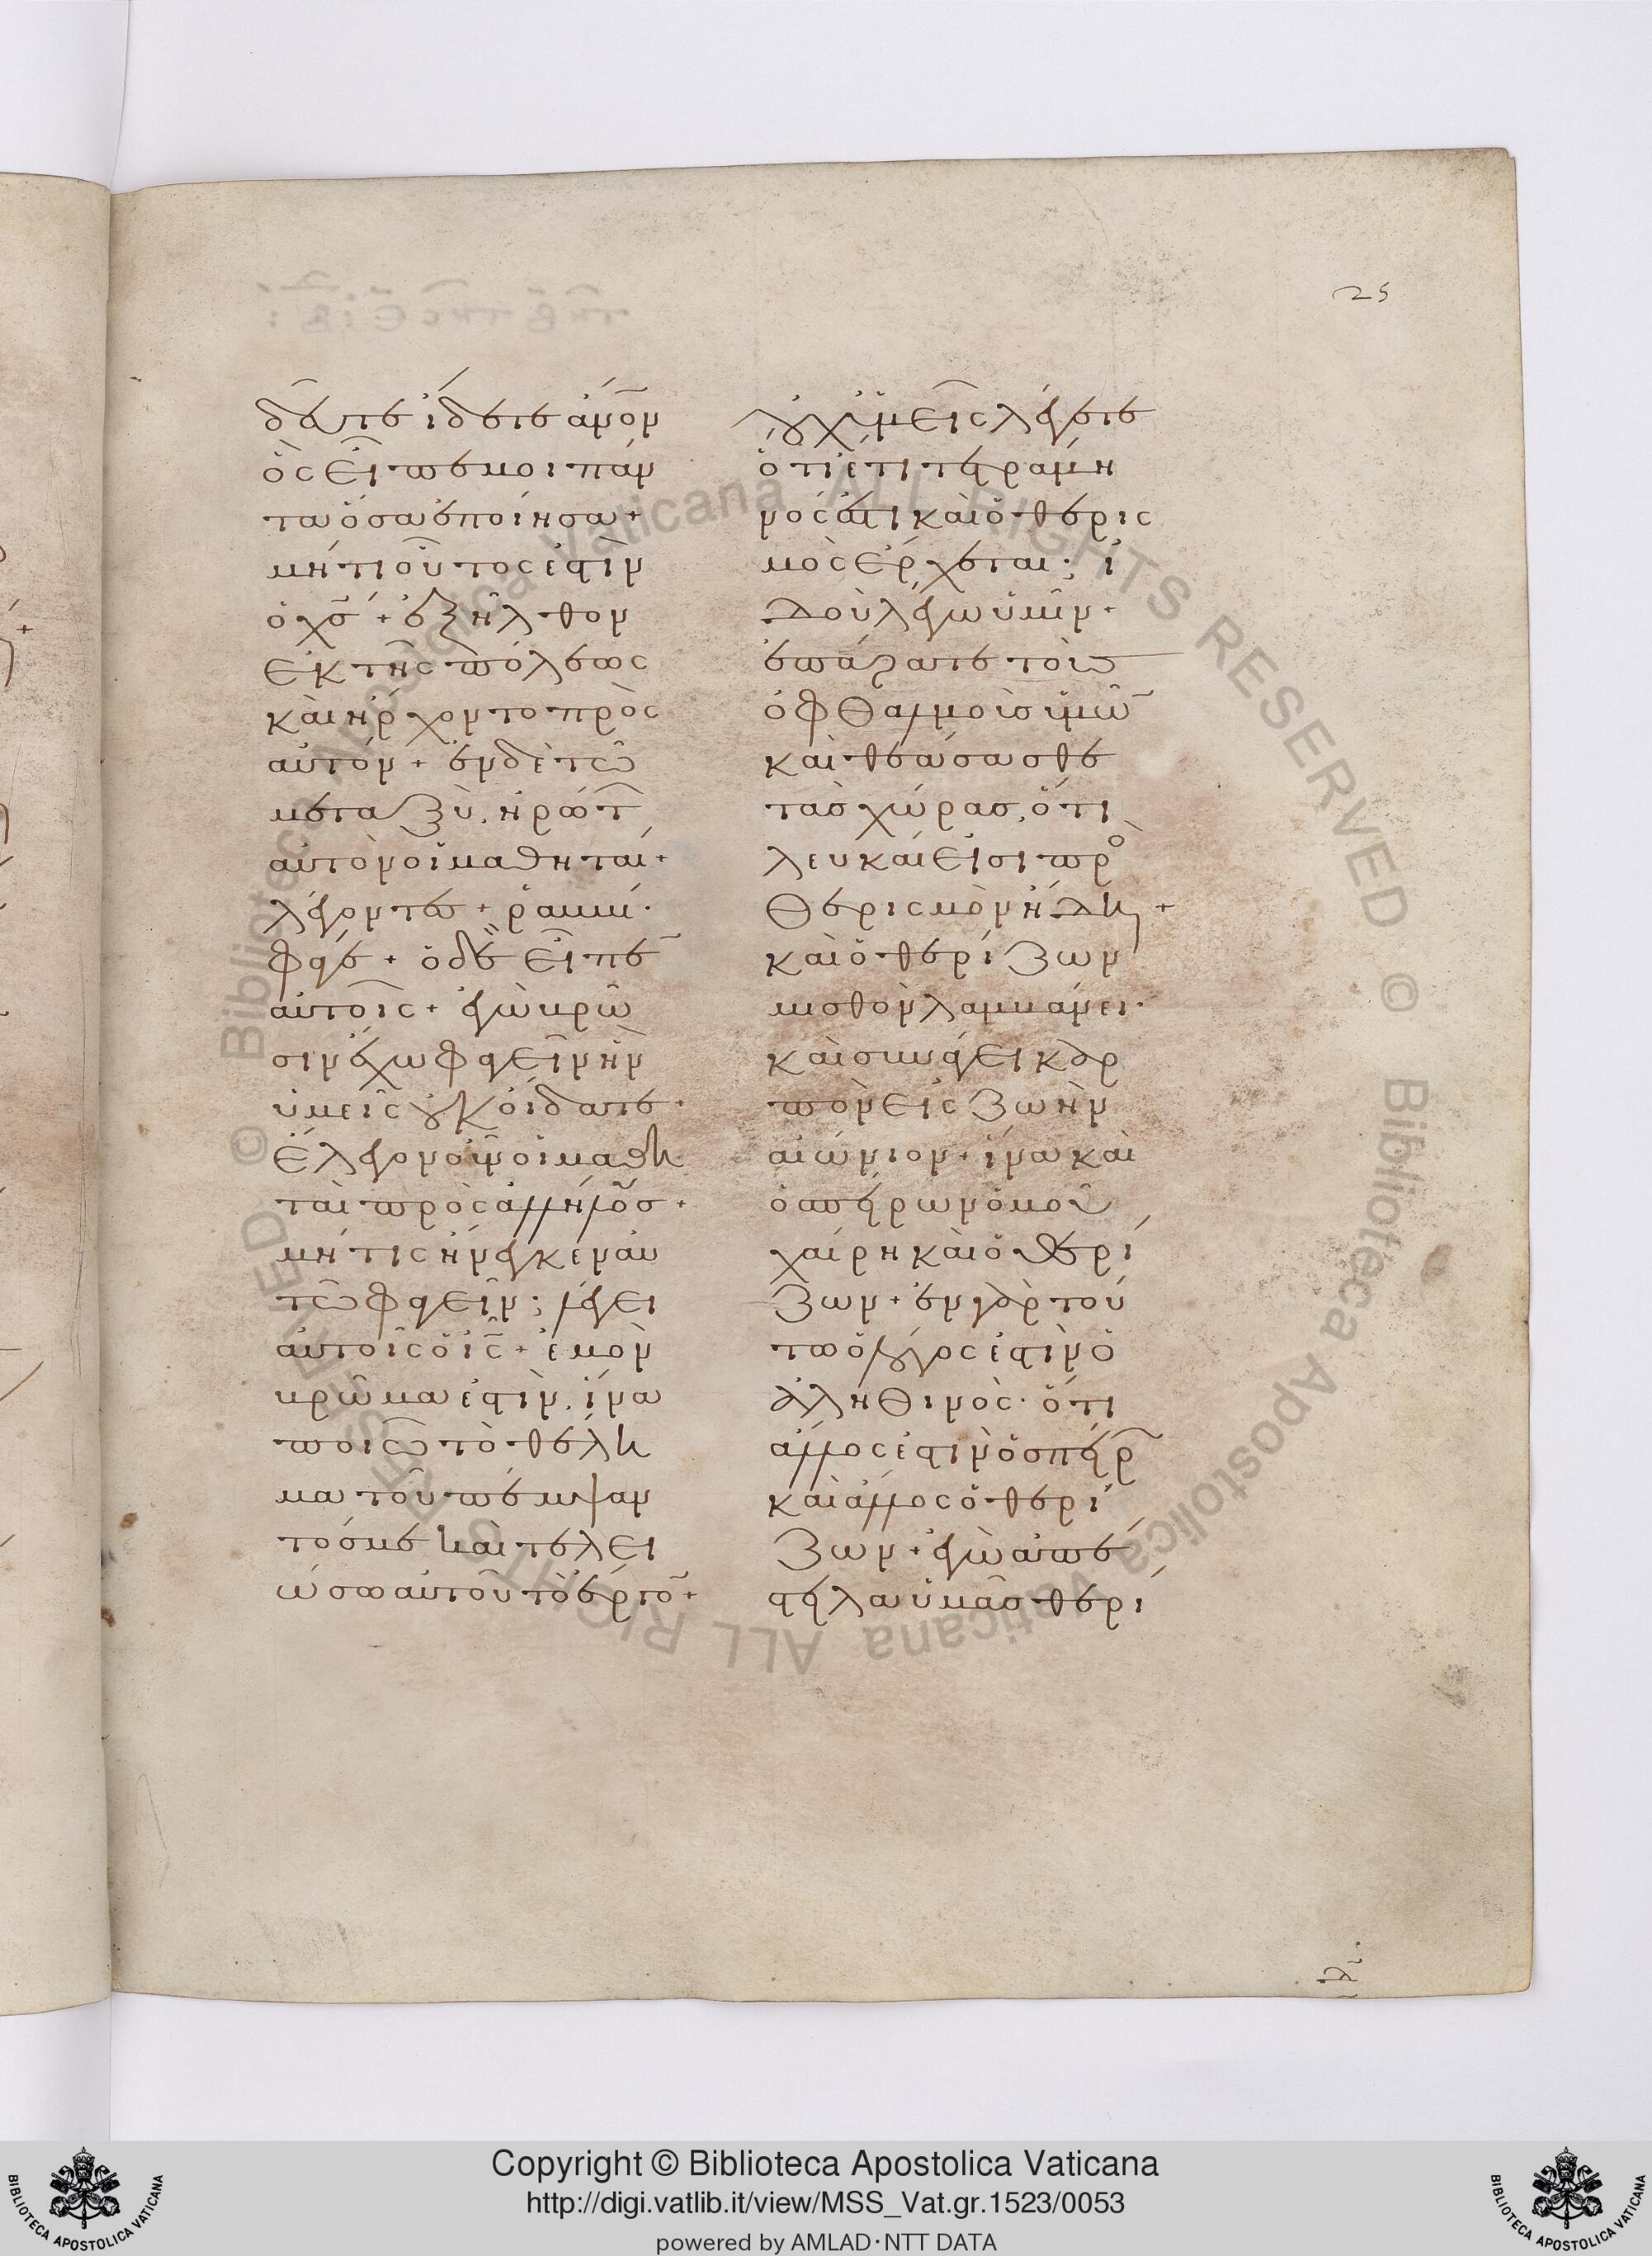 25
δεῦτε ἴδετε ἄνον
ὃς εἶπε μοι πάν
τα ὅσα ἐποίησα +
μήτι οὗτος ἐστὶν
ὁ χς + ἐξῆλθον
ἐκ τῆς πόλεως
καὶ ἤρχοντο πρὸς
αὐτόν + ἐν δὲ τῶ
μεταξὺ, ἠρώτ
αὐτὸν οἱ μαθηταί +
λέγοντες + ῥαββί·
φάγε + ὁ δὲ εἶπε
αὐτοῖς + ἐγὼ βρῶ
σιν ἔχω φαγεῖν ἣν
ὑμεῖς οὐκ οἴδατε·
ἔλεγον οὖν οἱ μαθη
ταὶ πρὸς ἀλλήλους +
μή τις ἤνεγκεν αὐ
τῶ φαγεῖν; λέγει
αὐτοῖς ὁ ις + ἐμὸν
βρῶμα ἐστὶν, ἵνα
ποιῶ τὸ θέλη
μα τοῦ πέμψαν
τός με καὶ τελει
ώσω αὐτοῦ τὸ ἔργον +
οὐχ ὑμεῖς λέγετε
ὅτι ἔτι τετράμη
νός ἐστι καὶ ὁ θερις
μὸς ἔρχεται; ἰ
δοὺ λέγω ὑμῖν·
ἐπάρατε τοὺς
ὀφθαλμοὺς ὑμῶν
καὶ θεάσασθε
τὰς χώρας, ὅτι
λευκαί εἰσι πρὸ
θερισμὸν ἤδη +
καὶ ὁ θερίζων
μισθὸν λαμβάνει·
καὶ συνάγει καρ
πὸν εἰς ζωὴν
αἰώνιον + ἵνα καὶ
ὁ σπείρων ὁμοῦ
χαίρη καὶ ὁ θερί
ζων + ἐν γὰρ τού
τω ὁ λόγος ἐστὶν ὁ
ἀληθινὸς· ὅτι
ἄλλος ἐστιν ὁ σπείρ
καὶ ἄλλος ὁ θερί
ζων + ἐγὼ ἀπέ
στειλα ὑμᾶς θερί
Copyright © Biblioteca Apostolica Vaticana
http://digi.vatlib.it/view/MSS_Vat.gr.1523/0053
powered by AMLAD·NTT DATA
BIBLIOTECA APOSTOLICA VATICANA
BIBLIOTECA APOSTOLICA VATICANA